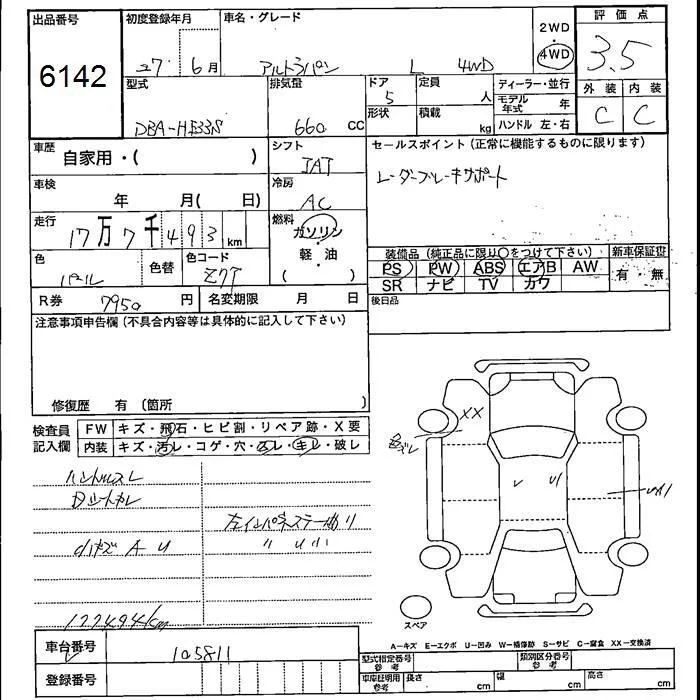 出品番号
6142
初度登録年月
27年 6月
車名・グレード
アルトラパン L 4WD
2WD
4WD
評価点
3.5
外装 内装
C C
型式
DBA-HE33S
排気量
660 CC
ドア
5
形状
定員
人
積載
kg
ディーラー・並行
モデル年式 年
ハンドル 左・右
車歴
自家用・( )
シフト
IAT
セールスポイント(正常に機能するものに限ります)
レーダーブレーキサポート
車検
年 月(日)
冷房
AC
走行
17万7千493km
燃料
ガソリン
軽・油
( )
色
パール
色替
色コード
Z7T
装備品(純正品に限り○をつけて下さい)
PS PW ABS エアB AW
SR ナビ TV カワ
新車保証書
有・無
R券 7950 円
名変期限 月 日
後日品
注意事項申告欄(不具合内容等は具体的に記入して下さい)
修復歴 有〔箇所 〕
検査員記入欄
FW キズ・飛石・ヒビ割・リペア跡・X要
内装 キズ・汚レ・コゲ・穴・スレ・キレ・破レ
ハンドルスレ
小キズ A U
177494km
XX
スペア
A―キズ E―エクボ U―凹み W―補修跡 S―サビ C―腐食 XX―交換済
車台番号
105811
登録番号
型式指定番号 参考
類別区分番号 参考
車庫証明用 参考
長さ cm
幅 cm
高さ cm